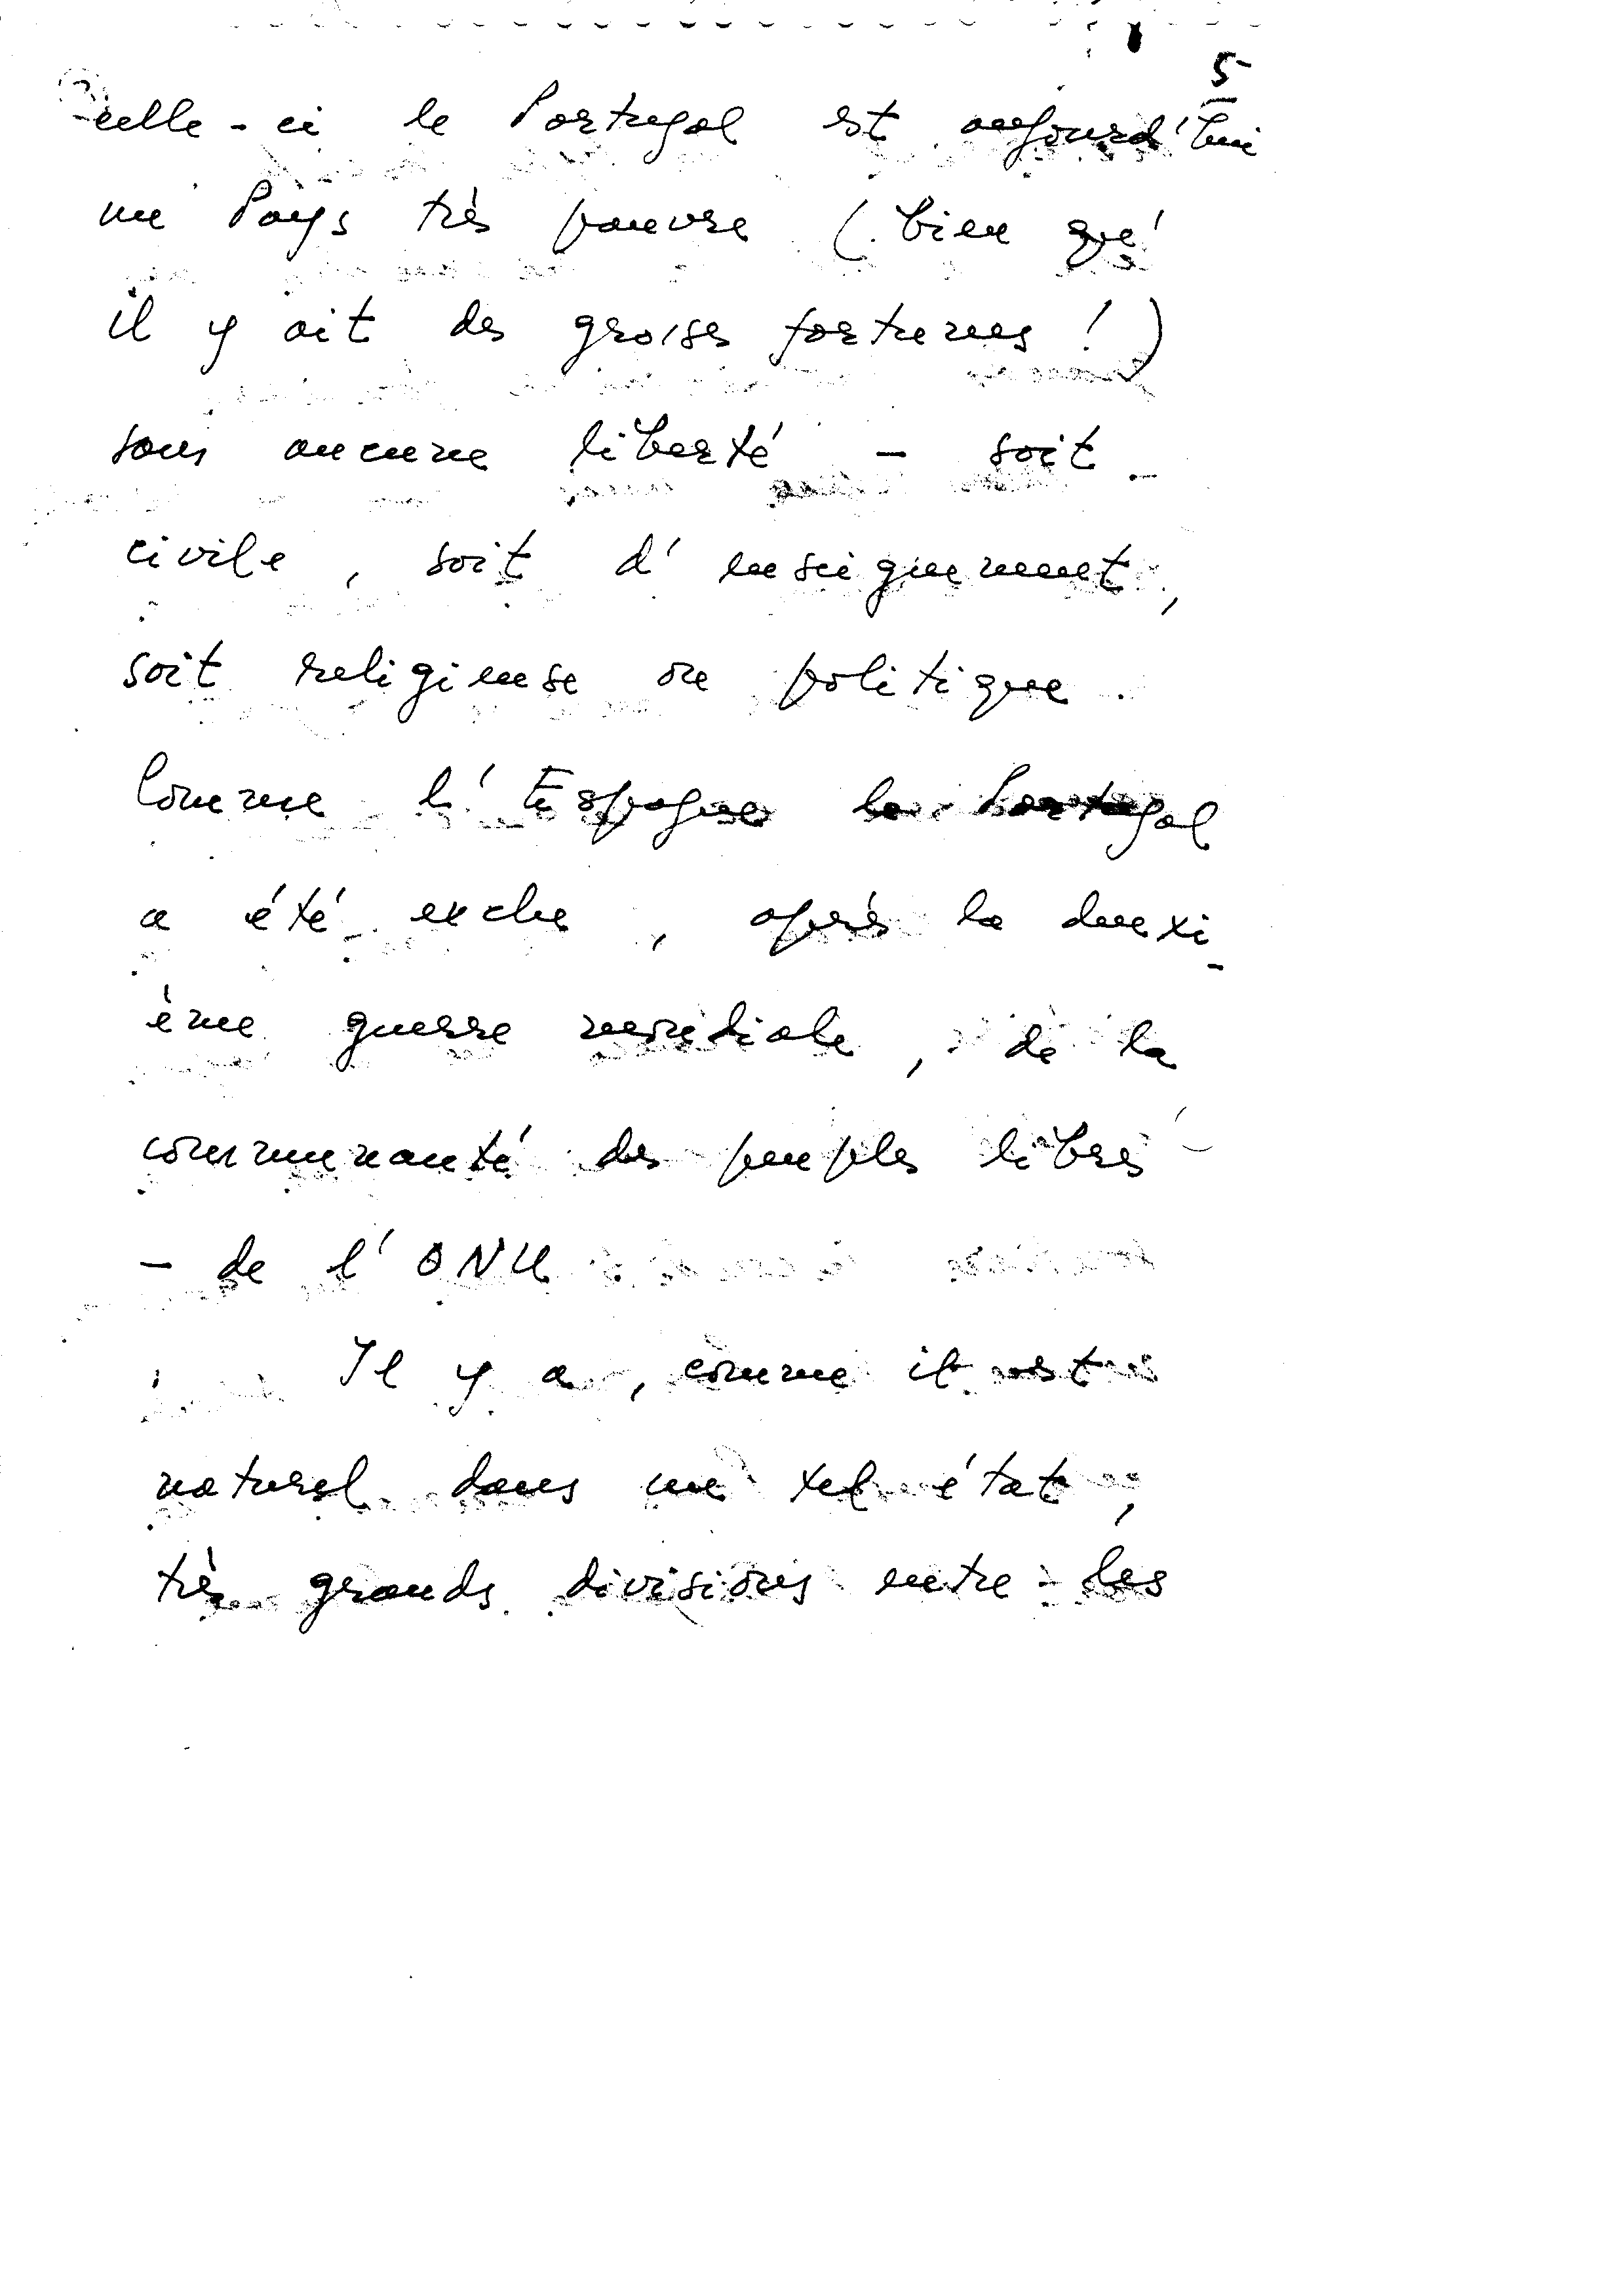 5
celle-ci le Portugal est aujourd'hui
un Pays très pauvre (bien qu'
il y ait des groses fortunes!)
sans aucune liberté - soit
civile, soit d'enseignement,
soit religieuse ou politique.
Comme l'Espagne le Portugal
a été exclu, après la deuxi-
ème guerre mondiale, de la
communauté des peuples libres -
- de l'ONU
Il y a, comme il est
naturel dans un tel état,
très grands divisions entre les